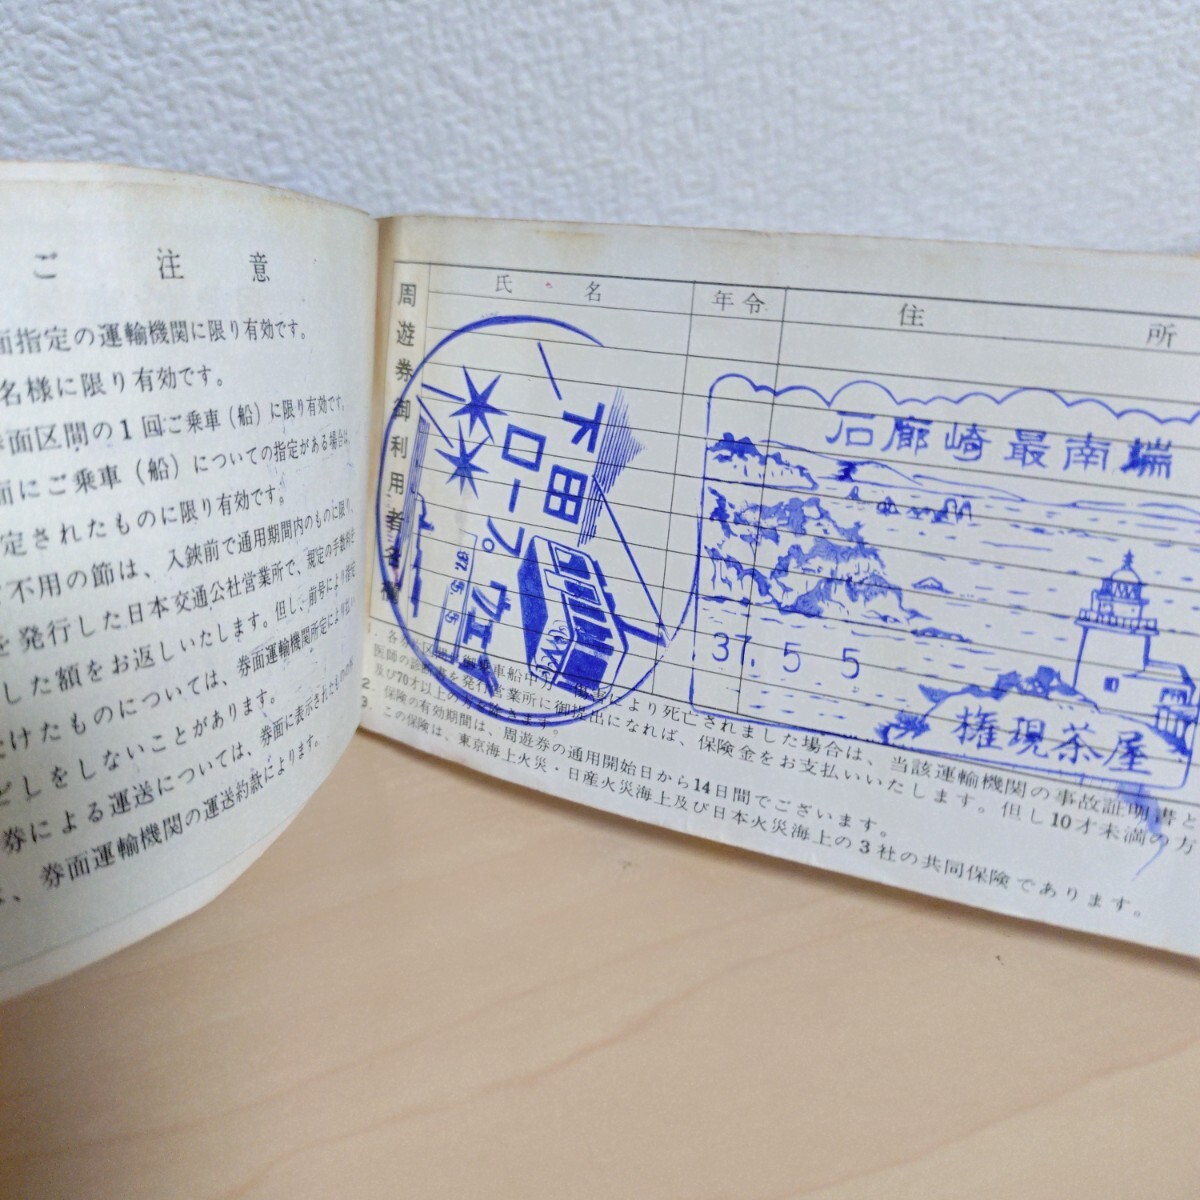 ご注意
面指定の運輸機関に限り有効です。
名様に限り有効です。
券面区間の1回ご乗車（船）に限り有効です。
面にご乗車（船）についての指定がある場合は、
定されたものに限り有効です。
不用の節は、入鋏前で通用期間内のものに限り、
を発行した日本交通公社営業所で、規定の手数料を
した額をお返しいたします。但し、前号により指定
たものについては、券面運輸機関所定により払い
どしをしないことがあります。
券による運送については、券面に表示されたもののほ
、券面運輸機関の運送約款によります。
周遊券御利用者名簿
氏名
年令
住所
下田
ロープウェイ
37.5.5
石廊崎最南端
37. 5 5
権現茶屋
により死亡されました場合は、当該運輸機関の事故証明書と
医師の診断書を発行営業所に御提出になれば、保険金をお支払いいたします。但し10才未満の方
及び70才以上の方を除きます。
2. 保険の有効期間は、周遊券の通用開始日から14日間でございます。
3. この保険は、東京海上火災・日産火災海上及び日本火災海上の3社の共同保険であります。